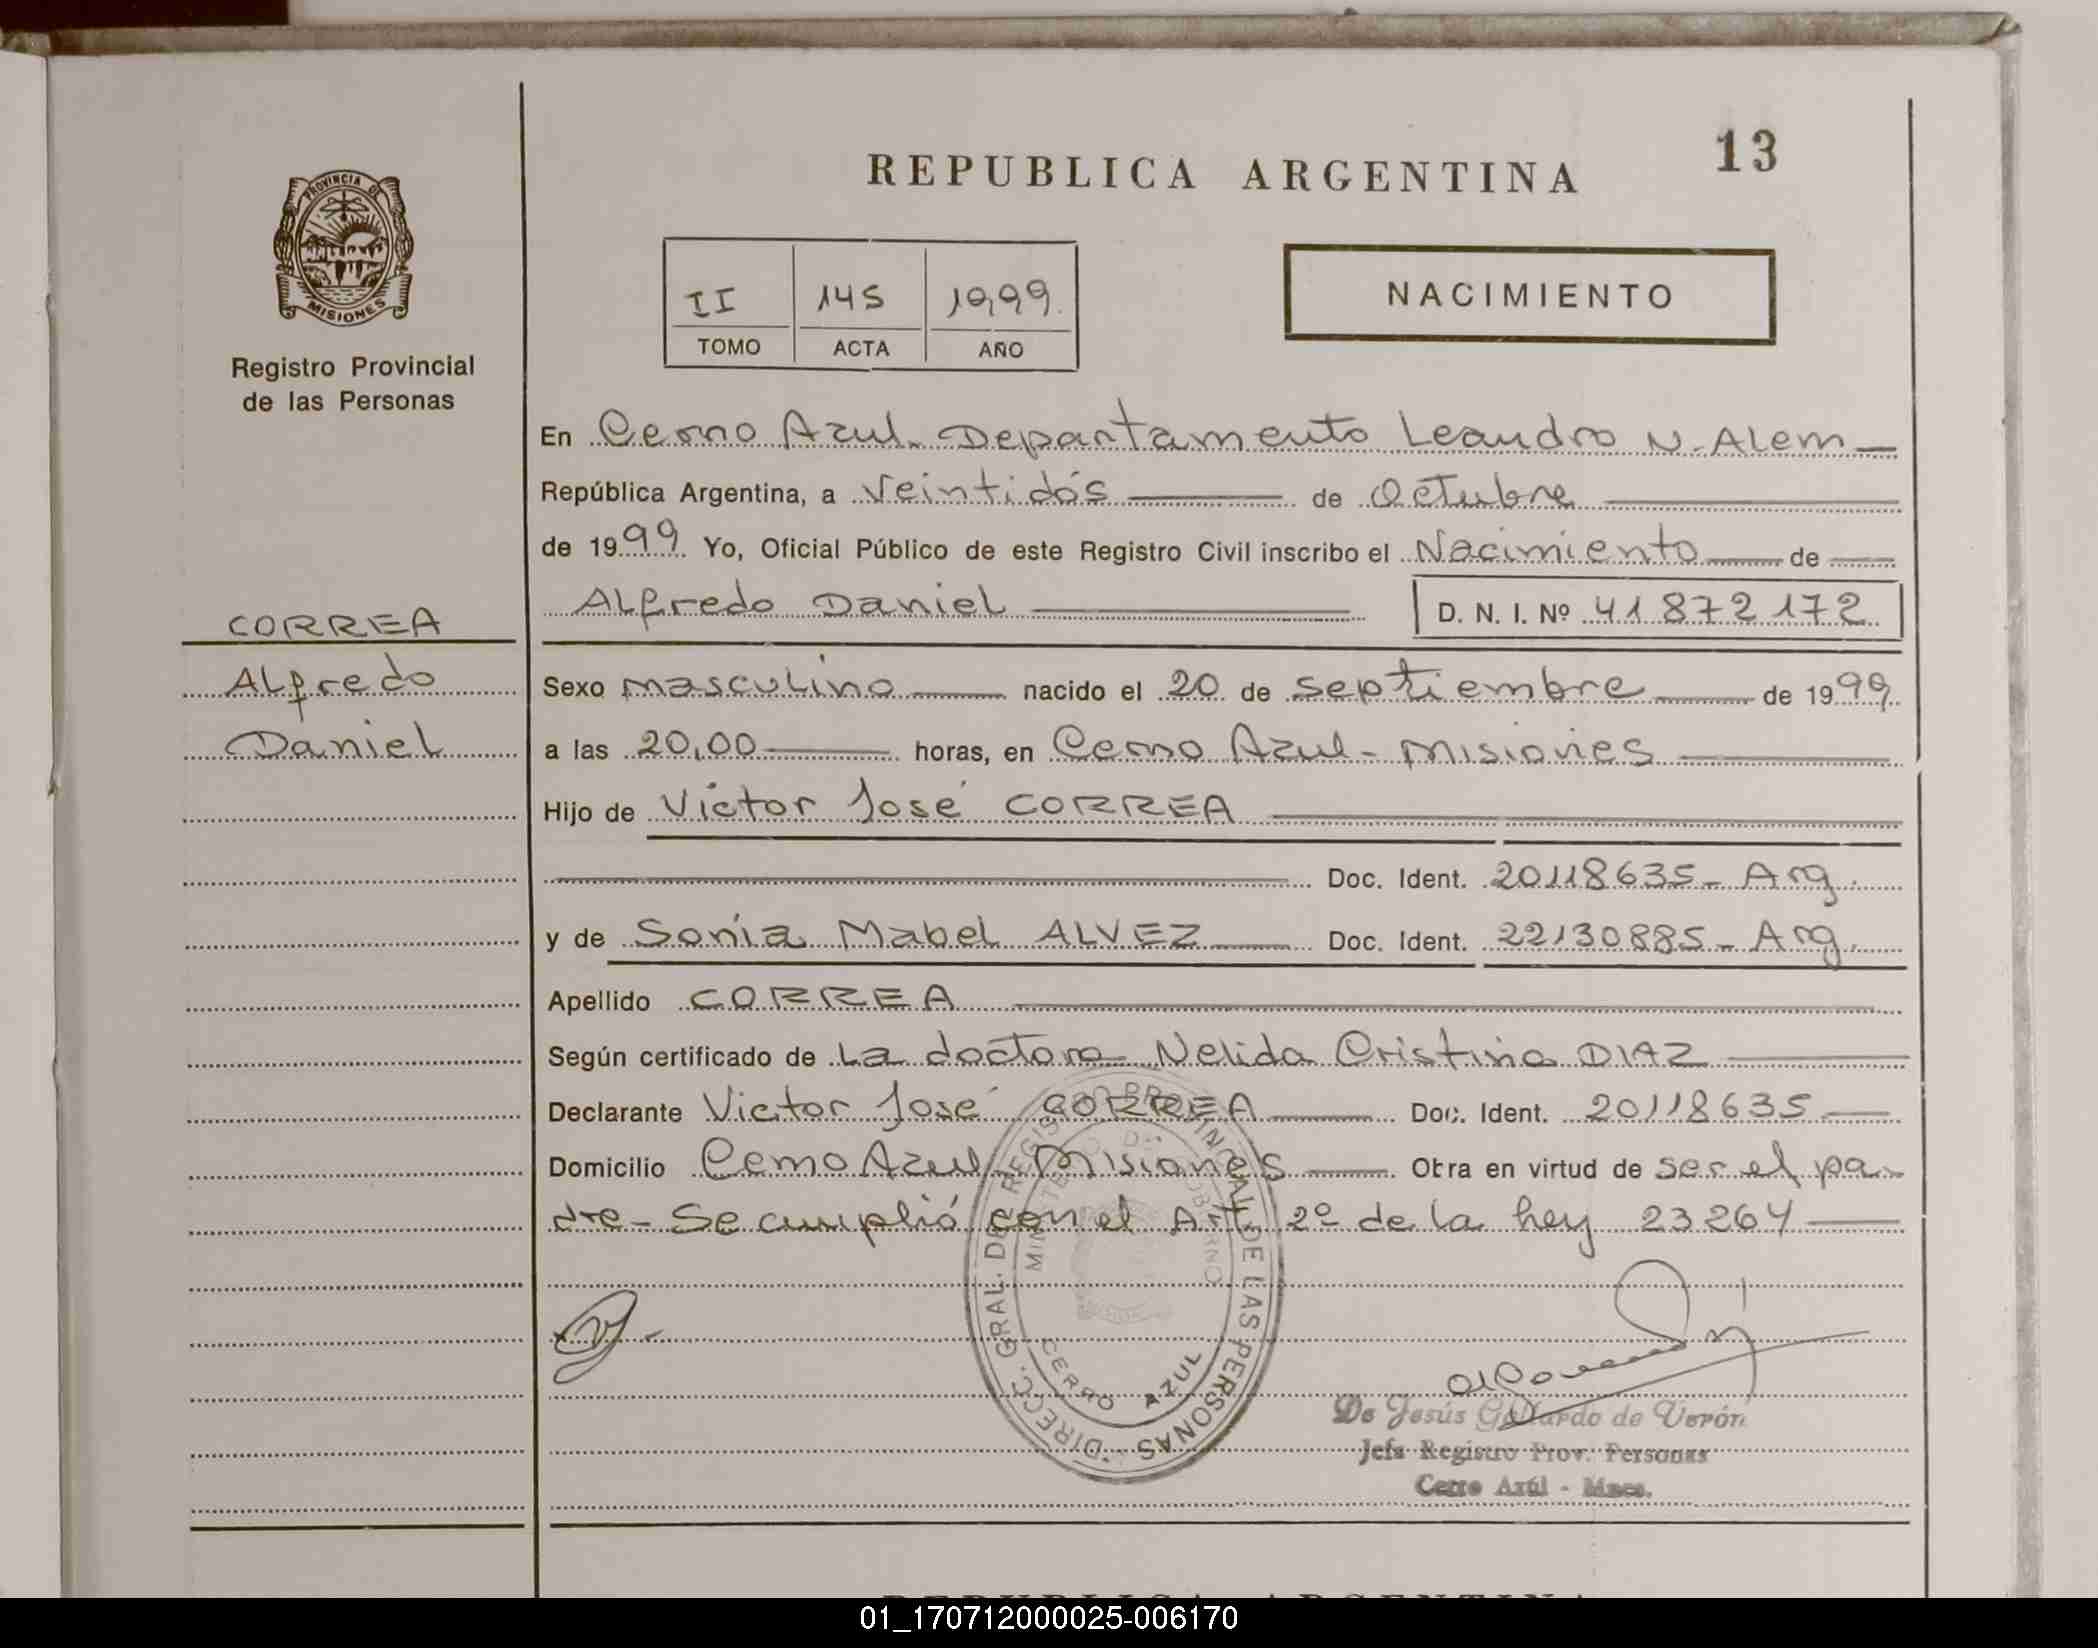 13
REPUBLICA ARGENTINA
PROVINCIA DE
MISIONES
Registro Provincial
de las Personas
II 145 1999
TOMO ACTA AÑO
NACIMIENTO
En Cerro Azul. Departamento Leandro N. Alem
República Argentina, a veintidós de Octubre
de 1999. Yo, Oficial Público de este Registro Civil inscribo el Nacimiento de
Alfredo Daniel D. N. I. Nº 41872172
CORREA
Alfredo
Daniel
Sexo masculino nacido el 20 de septiembre de 1999
a las 20,00 horas, en Cerro Azul - Misiones
Hijo de Victor José CORREA
Doc. Ident. 20118635 - Arg.
y de Sonia Mabel ALVEZ Doc. Ident. 22130885 - Arg.
Apellido CORREA
Según certificado de la doctora Nelida Cristina DIAZ
Declarante Victor José CORREA Doc. Ident. 20118635
Domicilio Cerro Azul - Misiones Obra en virtud de ser el pa-
dre - Se cumplió con el Art. 2º de la ley 23264
DIRECC. GRAL. DE REGISTRO PROVINCIAL DE LAS PERSONAS
MINISTERIO DE GOBIERNO
CERRO AZUL
De Jesús Gallardo de Verón
Jefa Registro Prov. Personas
Cerro Azul - Mnes.
REPUBLICA ARGENTINA
01_170712000025-006170